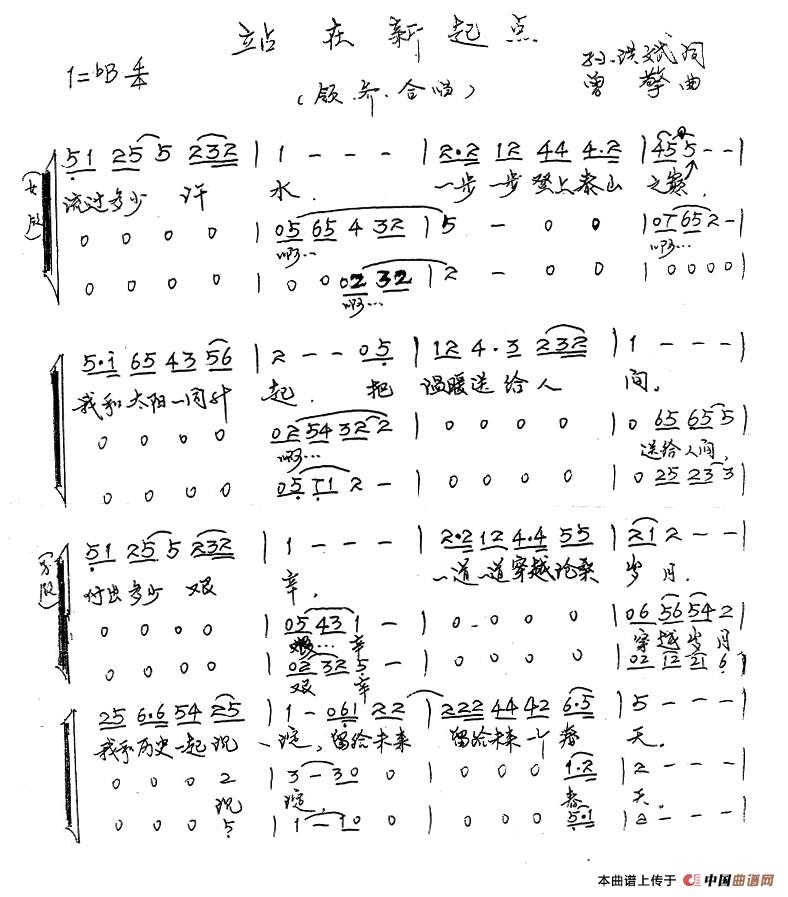 站在新起点
1=♭B 4/4
(领、齐、合唱)
孙洪斌词
曾擎曲
5 1 2 5 5 2 3 2 | 1 - - - | 2·2 1 2 4 4 4·2 | 4 5 5 - - |
流过多少 汗 水. 一步一步登上泰山之巅.
0 0 0 0 | 0 5 6 5 4 3 2 | 5 - 0 0 |
啊…
0 0 0 0 | 0 0 0 2 3 2 | 2 - 0 0 | 0 0 0 0 |
啊…
5·i 6 5 4 3 5 6 | 2 - - 0 5 | 1 2 4·3 2 3 2 | 1 - - - |
我和太阳一同升 起. 把 温暖送给人 间。
0 0 0 0 | 0 2 5 4 3 2 2 | 0 0 0 0 | 0 6 5 6 5 5
啊… 送给人间,
0 0 0 0 | 0 5 7 1 2 - | 0 0 0 0 | 0 2 5 2 3 3
5 1 2 5 5 2 3 2 | 1 - - - | 2·2 1 2 4·4 5 5 | 2 1 2 - - |
付出多少 艰 辛. 一道一道穿越沧桑 岁月.
0 0 0 0 | 0 5 4 3 1 - | 0 0 0 0 | 0 6 5 6 5 4 2 |
艰… 辛 穿越岁月
0 0 0 0 | 0 2 3 2 5 - | 0 0 0 0 | 0 2 1 2 2 1 6 |
艰 辛
2 5 6·6 5 4 2 5 | 1 - 0 6 1 2 2 | 2 2 2 4 4 4 2 6·5 | 5 - - - |
我和历史一起沉 淀, 留给未来 留给未来一个春 天.
0 0 0 2 | 3 - 3 0 0 | 0 0 0 1·2 | 2 - - - |
沉 淀, 春 天.
0 0 0 5 | 1 - 1 0 0 | 0 0 0 5·1 | 2 - - - |
本曲谱上传于 中国曲谱网